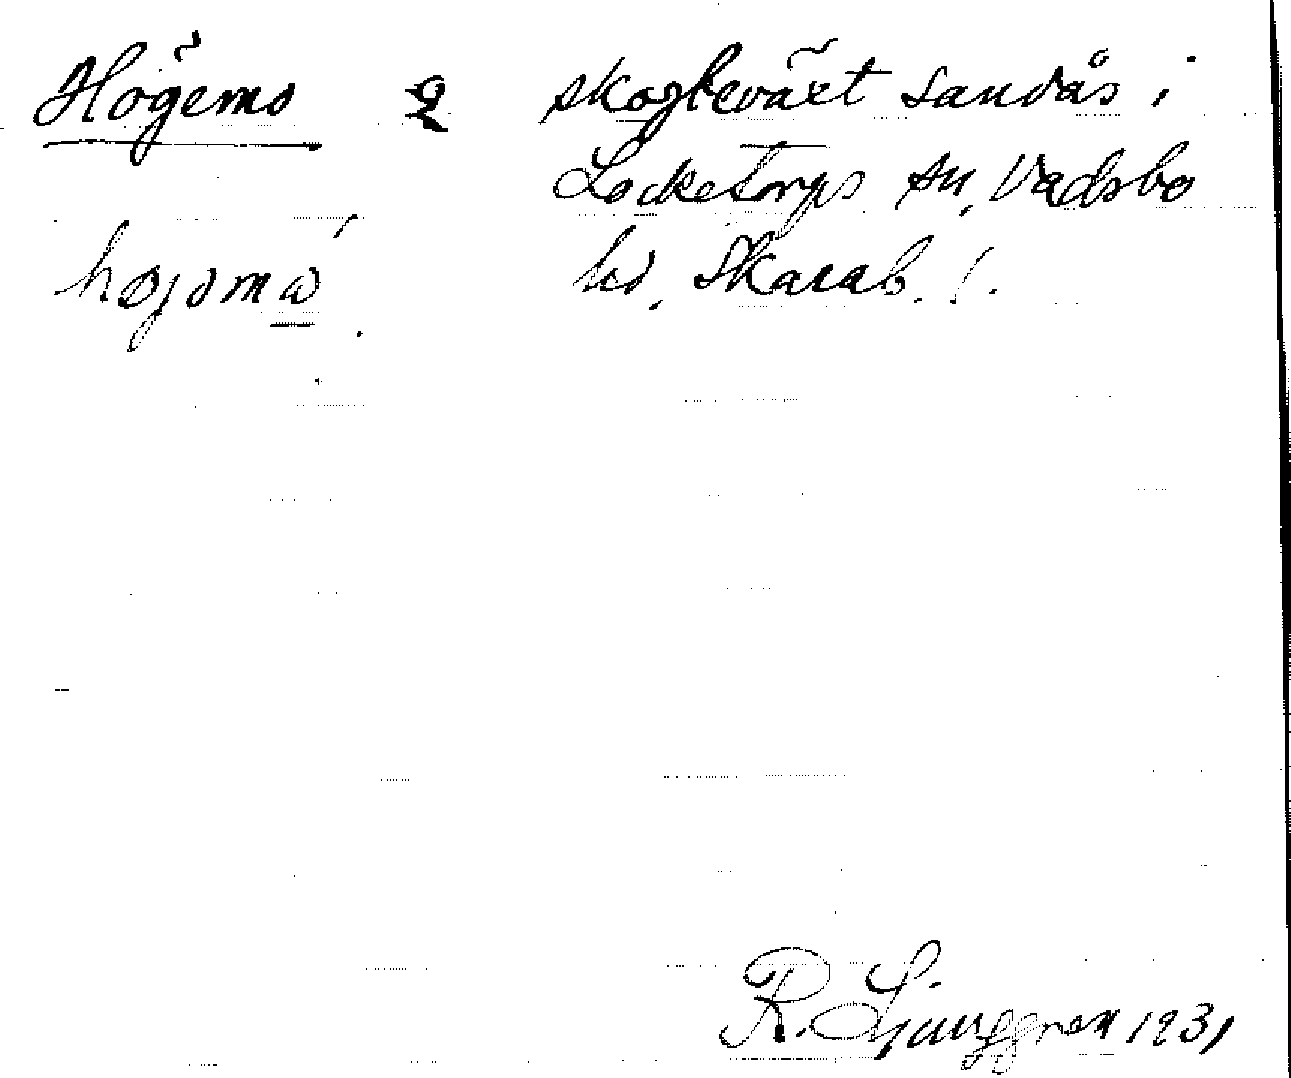 Högemo 2 skogbeväxt sandås i
Locketorps sn, Vadsbo
hd, Skarab. !.
R. Ljunggren 1931